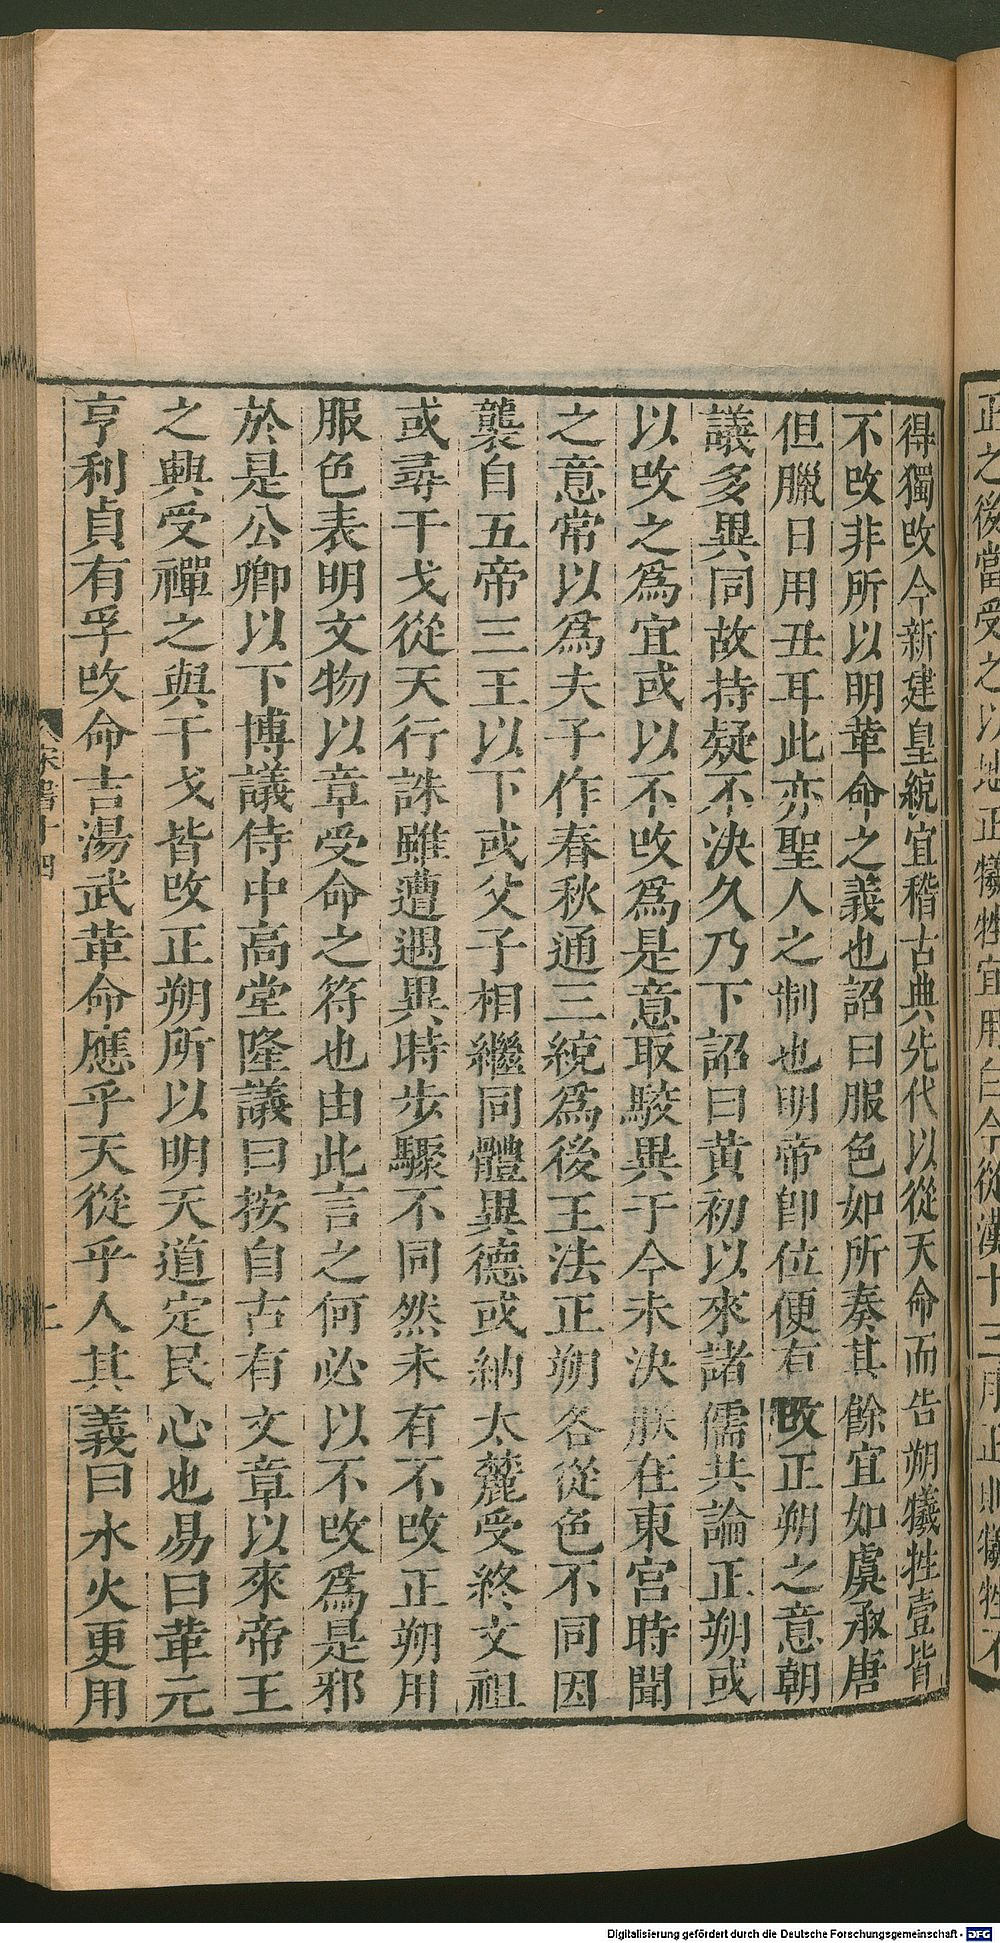 正之後當受之以地正犧牲宜用白今從漢十三月正則犧牲不
得獨攺今新建皇統宜稽古典先代以從天命而告朔犧牲壹皆
不攺非所以明革命之義也詔曰服色如所奏其餘宜如虞承唐
但臘日用丑耳此亦聖人之制也明帝卽位便有攺正朔之意朝
議多異同故持疑不決久乃下詔曰黃初以來諸儒共論正朔或
以攺之爲宜或以不攺爲是意取駮異于今未決朕在東宮時聞
之意常以爲夫子作春秋通三統爲後王法正朔各從色不同因
襲自五帝三王以下或父子相繼同體異德或納太麓受終文祖
或尋干戈從天行誅雖遭遇異時步驟不同然未有不攺正朔用
服色表明文物以章受命之符也由此言之何必以不攺爲是邪
於是公卿以下博議侍中高堂隆議曰按自古有文章以來帝王
之興受禪之與干戈皆攺正朔所以明天道定民心也易曰革元
亨利貞有孚攺命吉湯武革命應乎天從乎人其義曰水火更用
宋書十四
Digitalisierung gefördert durch die Deutsche Forschungsgemeinschaft - DFG